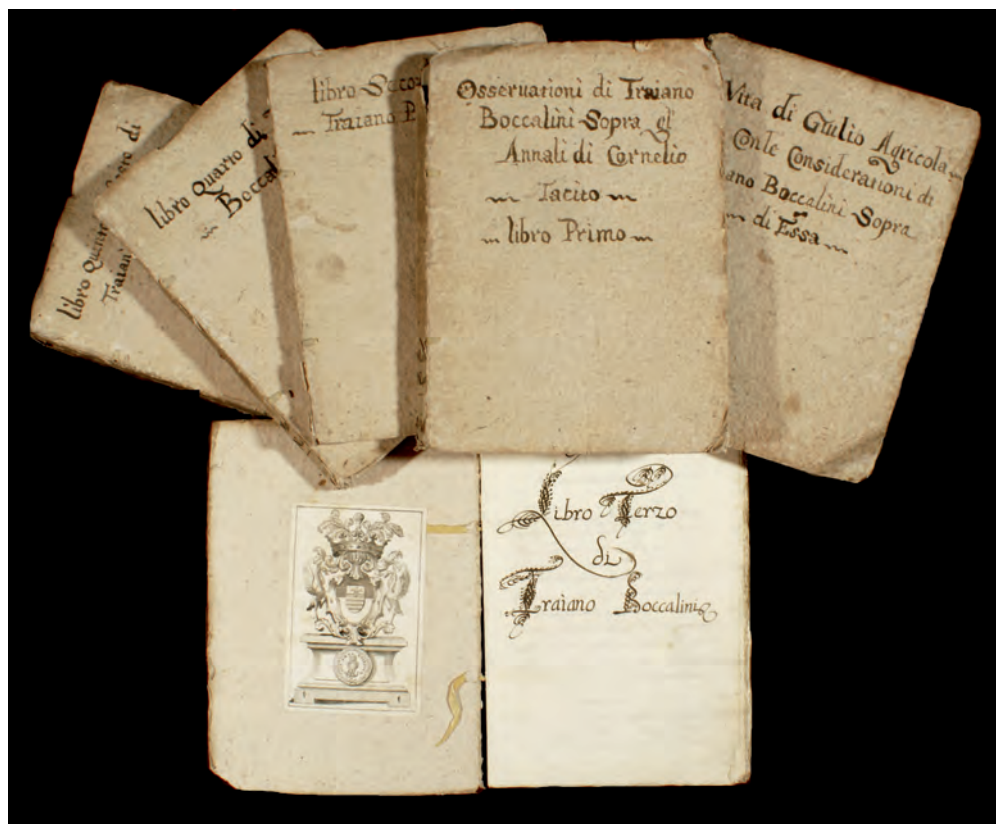 libro Quin
Traian
di
libro Quarto di
Boccal
libro Seco
Traiano
Osseruationi di Traiano
Boccalini Sopra gl
Annali di Cornelio
Tacito
libro Primo
Vita di Giulio Agricola
Con le Considerationi di
ano Boccalini Sopra
di Essa
Libro Terzo
di
Traiano Boccalini